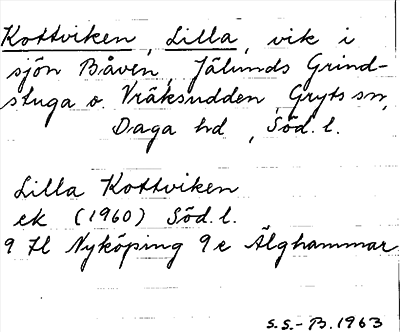 Kottviken, Lilla, vik i
sjön Båven, Jälunds Grind-
stuga o. Vräksudden, Gryts sn,
Daga hd, Söd. l.
Lilla Kottviken
ek (1960) Söd. l.
9 H Nyköping 9 e Älghammar
S.S.- B. 1963